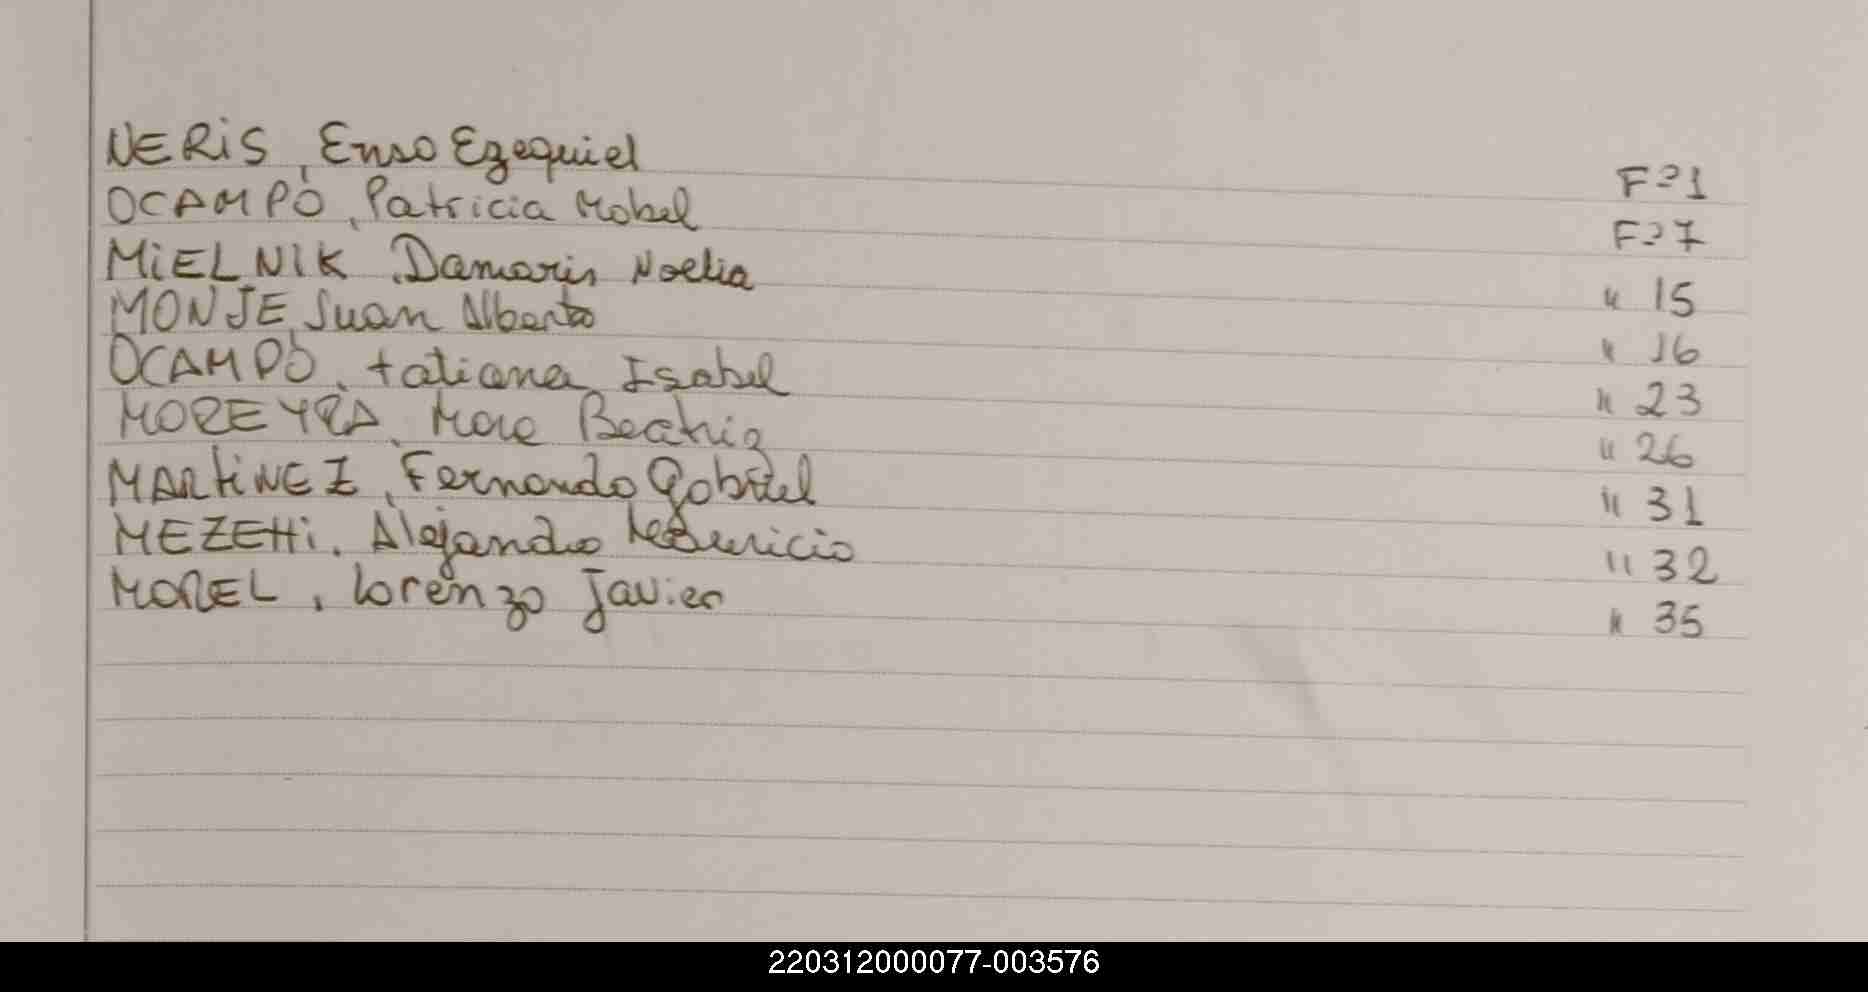 NERiS, Enso Ezequiel F° 1
OCAMPO, Patricia Mabel F° 7
MiELNIK, Damaris Noelia " 15
MONJE, Juan Alberto " 16
OCAMPO, tatiana Isabel " 23
MOREYRA, Beatriz " 26
MARtiNEZ, Fernando Gabriel " 31
MEZEtti, Alejandro Mauricio " 32
MOREL, Lorenzo Javier " 35
220312000077-003576